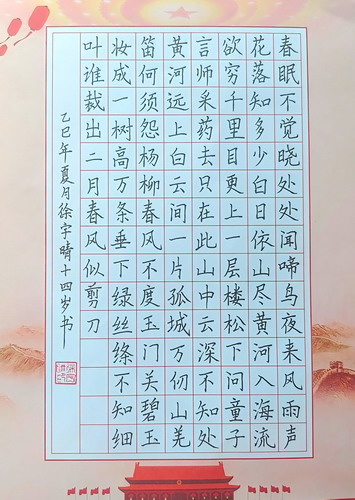 春眠不觉晓处处闻啼鸟夜来风雨声
花落知多少白日依山尽黄河入海流
欲穷千里目更上一层楼松下问童子
言师采药去只在此山中云深不知处
黄河远上白云间一片孤城万仞山羌
笛何须怨杨柳春风不度玉门关碧玉
妆成一树高万条垂下绿丝绦不知细
叶谁裁出二月春风似剪刀
乙巳年夏月徐宇晴十四岁书